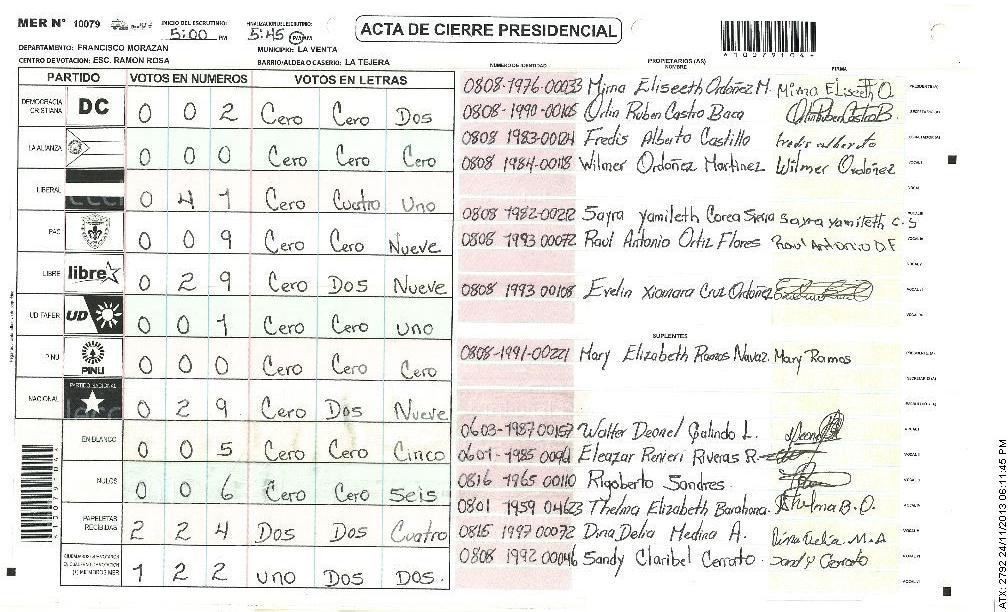 MER N° 10079
INICIO DEL ESCRUTINIO: 5:00 PM
FINALIZACION DEL ESCRUTINIO: 5:45 PM
ACTA DE CIERRE PRESIDENCIAL
DEPARTAMENTO: FRANCISCO MORAZAN
MUNICIPIO: LA VENTA
CENTRO DE VOTACION: ESC. RAMON ROSA
BARRIO/ALDEA O CASERIO: LA TEJERA
PARTIDO VOTOS EN NUMEROS VOTOS EN LETRAS
DEMOCRACIA CRISTIANA DC 0 0 2 Cero Cero Dos
LA ALIANZA 0 0 0 Cero Cero Cero
LIBERAL 0 4 1 Cero Cuatro Uno
PAC 0 0 9 Cero Cero Nueve
LIBRE libre 0 2 9 Cero Dos Nueve
UD FAPER UD 0 0 1 Cero Cero uno
PINU PINU 0 0 0 Cero Cero Cero
NACIONAL PARTIDO NACIONAL 0 2 9 Cero Dos Nueve
EN BLANCO 0 0 5 Cero Cero Cinco
NULOS 0 0 6 Cero Cero Seis
PAPELETAS RECIBIDAS 2 2 4 Dos Dos Cuatro
1 2 2 uno Dos Dos.
NUMERO DE IDENTIDAD
PROPIETARIOS (AS)
NOMBRE
FIRMA
0808-1976-00033 Mirna Eliseeth Ordóñez M. Mirna Eliseeth O.
0808-1990-00105 Orlin Ruben Castro Baca
0808 1983-00024 Fredis Alberto Castillo fredis alberto
0808 1984-00118 Wilmer Ordóñez Martinez Wilmer Ordoñez
0808 1982-00212 Sayra Yamileth Corea Sierra Sayra yamileth C. S
0808 1993 00072 Raul Antonio Ortiz Flores Raul Antonio O.F
0808 1993 00108 Evelin Xiomara Cruz Ordoñez
SUPLENTES
0808-1991-00221 Mary Elizabeth Ramos Navaz. Mary Ramos
0603-1987 00157 Walter Deonel Galindo L.
Eleazar Renieri Riveras R.
0816 1965 00110 Rigoberto Sondres
0801 1959 04623 Thelma Elizabeth Barahona. Thelma B. O.
0815 1997 00072 Dina Delia Medina A. Dina Delia M.A
0808 1992 00046 Sandy Claribel Cerrato Sandy Cerrato
ATX: 2792 24/11/2013 06:11:45 PM